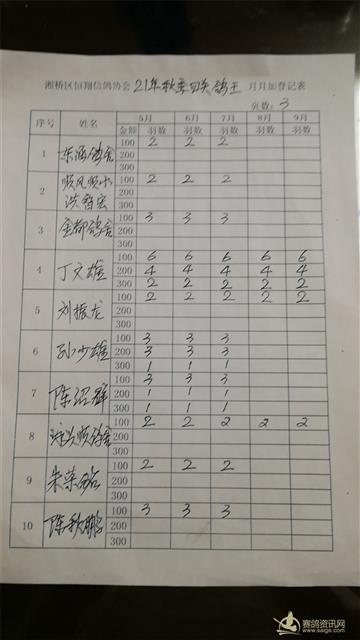 湘桥区恒翔信鸽协会 21年秋季四关鸽王 月月加登记表
页数: 3
序号 姓名 5月 6月 7月 8月 9月
金额 羽数 羽数 羽数 羽数 羽数
1 东涵鸽舍 100 2 2 2
200
300
2 顺风顺水 洪智宏 100 2 2 2
200
300
3 金都鸽舍 100 3 3 3
200
300
4 丁文雄 100 6 6 6 6 6
200 4 4 4 4 4
300 2 2 2 2 2
5 刘振龙 100 2 2 2 2 2
200
300
6 孙少雄 100 3 3 3
200 3 3 3
300 1 1 1
7 陈绍群 100 3 3 3
200 1 1 1
300 1 1 1
8 顺鸽舍 100 2 2 2 2 2
200
300
9 朱荣 100 2 2 2
200
300
10 陈秋鹏 100 3 3 3
200
300
赛鸽资讯网
www.saige.com